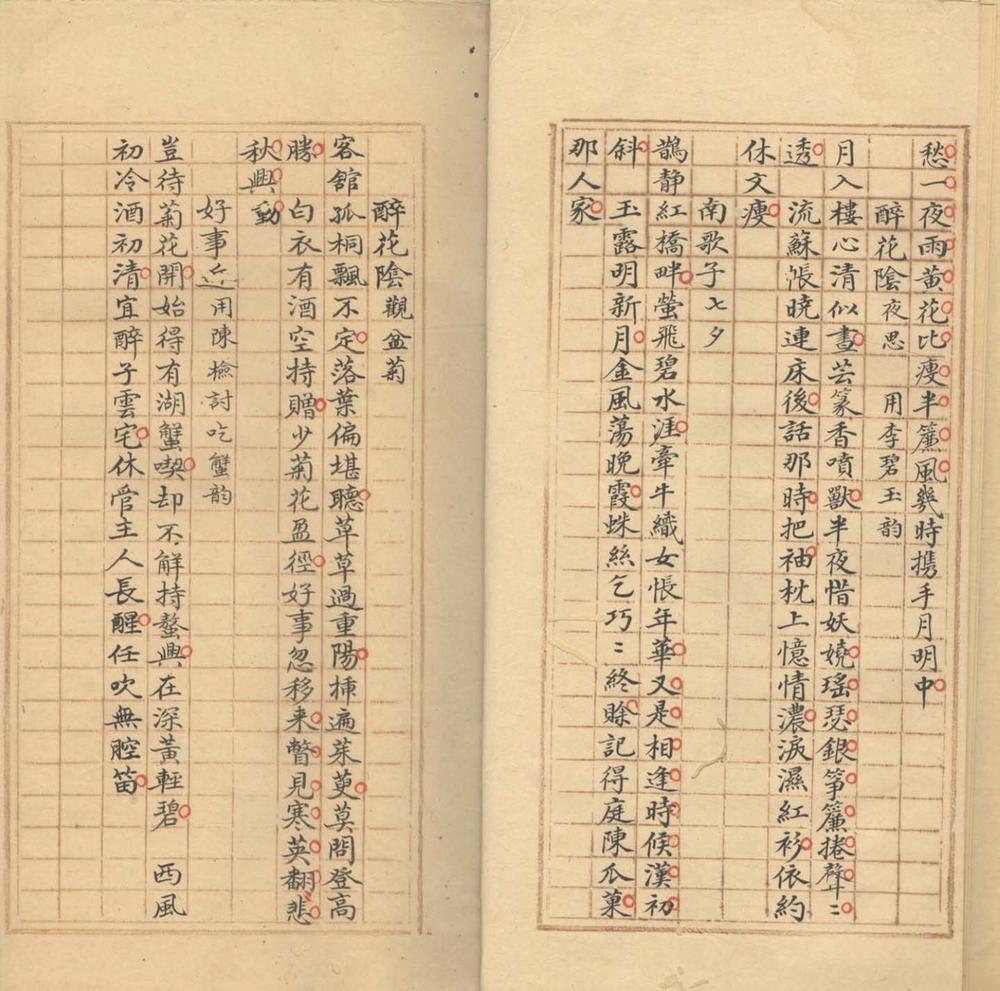 愁一夜雨黄花比瘦半簾風幾時携手月明中
醉花陰夜思 用李碧玉韵
月入樓心清似晝芸篆香噴獸半夜惜妖嬈瑤瑟銀箏簾捲聲〻
透 流蘇帳曉連床後話那時把袖枕上憶情濃淚濕紅衫依約
休文瘦
南歌子七夕
鵲静紅橋畔螢飛碧水涯牽牛織女悵年華又是相逢時候漢初
斜 玉露明新月金風蕩晚霞蛛絲乞巧〻終賖記得庭陳瓜菓
那人家
醉花陰觀盆菊
客舘孤桐飄不定落葉偏堪聽草草過重陽挿遍茱萸莫問登高
勝 白衣有酒空持贈少菊花盈徑好事忽移来瞥見寒英翻悲
秋興動
好事近用陳檢討吃蟹韵
豈待菊花開始得有湖蟹喫却不解持螯興在深黄輕碧 西風
初冷酒初清宜醉子雲宅休管主人長醒任吹無腔笛